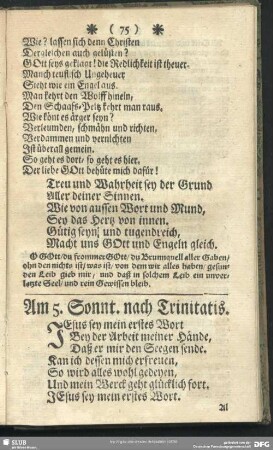 * (75) *
Wie? lassen sich denn Christen
Dergleichen auch gelüsten?
GOtt seys geklagt! die Redlichkeit ist theuer-
Manch teuflisch Ungeheuer
Sieht wie ein Engel aus.
Man kehrt den Wolff hinein,
Den Schaafs-Peltz kehrt man raus,
Wie könt es ärger seyn?
Verleumden, schmähn und richten,
Verdammen und vernichten
Ist überall gemein.
So geht es dort, so geht es hier.
Der liebe GOtt behüte mich dafür!
Treu und Wahrheit sey der Grund
Aller deiner Sinnen,
Wie von aussen Wort und Mund,
Sey das Hertz von innen.
Gütig seyn, und tugendreich,
Macht uns GOtt und Engeln gleich.
O GOtt, du frommer GOtt, du Brunnquell aller Gaben,
ohn den nichts ist, was ist, von dem wir alles haben, gesun-
den Leib gieb mir, und daß in solchem Leib ein unver-
letzte Seel, und rein Gewissen bleib.
Am 5. Sonnt. nach Trinitatis.
JEsus sey mein erstes Wort
Bey der Arbeit meiner Hände,
Daß er mir den Seegen sende.
Kan ich dessen mich erfreuen,
So wird alles wohl gedeyen,
Und mein Werck geht glücklich fort.
JEsus sey mein erstes Wort.
All
SLUB